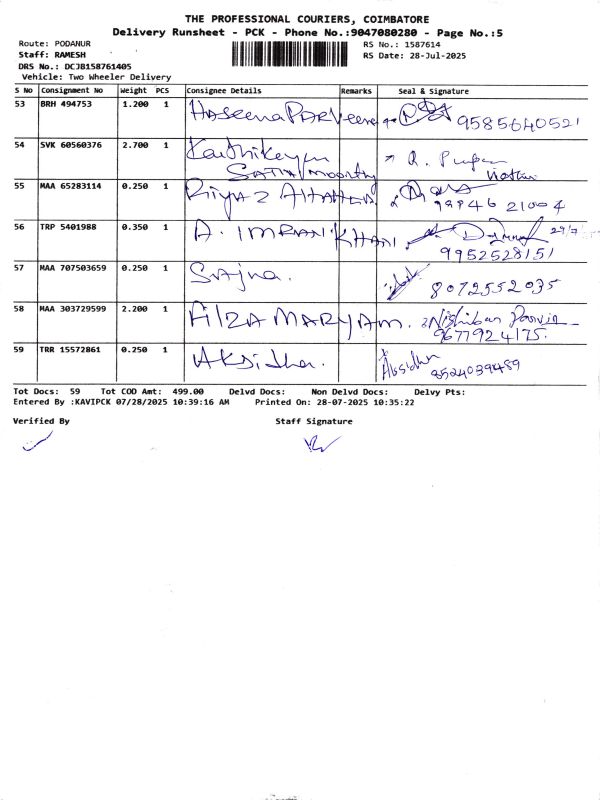 THE PROFESSIONAL COURIERS, COIMBATORE
Delivery Runsheet - PCK - Phone No.:9047080280 - Page No.:5
Route: PODANUR
RS No.: 1587614
Staff: RAMESH
RS Date: 28-Jul-2025
DRS No.: DCJB158761405
Vehicle: Two Wheeler Delivery
S No Consignment No Weight PCS Consignee Details Remarks Seal & Signature
53 BRH 494753 1.200 1 Haseena PARVeena 9585640521
54 SVK 60560376 2.700 1 Karthikeyan
Sathamoorthy
55 MAA 65283114 0.250 1 Riyaz Ahamed 99946 21004
56 TRP 5401988 0.350 1 A. IMRAN KHAN. 29/7
9952528151
57 MAA 707503659 0.250 1 Sajna. 8072552035
58 MAA 303729599 2.200 1 AilZA MARYAM. Nishiban
9677924175.
59 TRR 15572861 0.250 1 Aksidha. 9524039489
Tot Docs: 59 Tot COD Amt: 499.00 Delvd Docs: Non Delvd Docs: Delvy Pts:
Entered By :KAVIPCK 07/28/2025 10:39:16 AM Printed On: 28-07-2025 10:35:22
Verified By Staff Signature